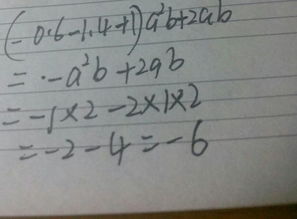 (-0.6-1.4+1)a²b+2ab
=-a²b+2ab
=-1×2-2×1×2
=-2-4=-6